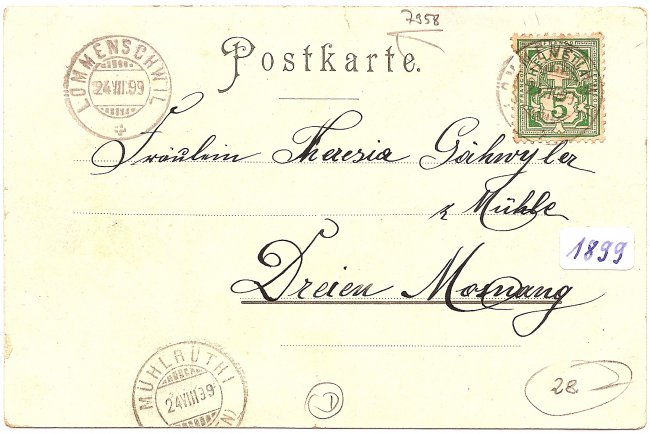 7958
Postkarte.
LOMMENSCHWIL
24.VIII.99
HELVETIA
5
Fräulein Theresia Gähwyler
z Mühle
Dreien Mosnang
1899
MÜHLRÜTHI
24.VIII.99
D
28